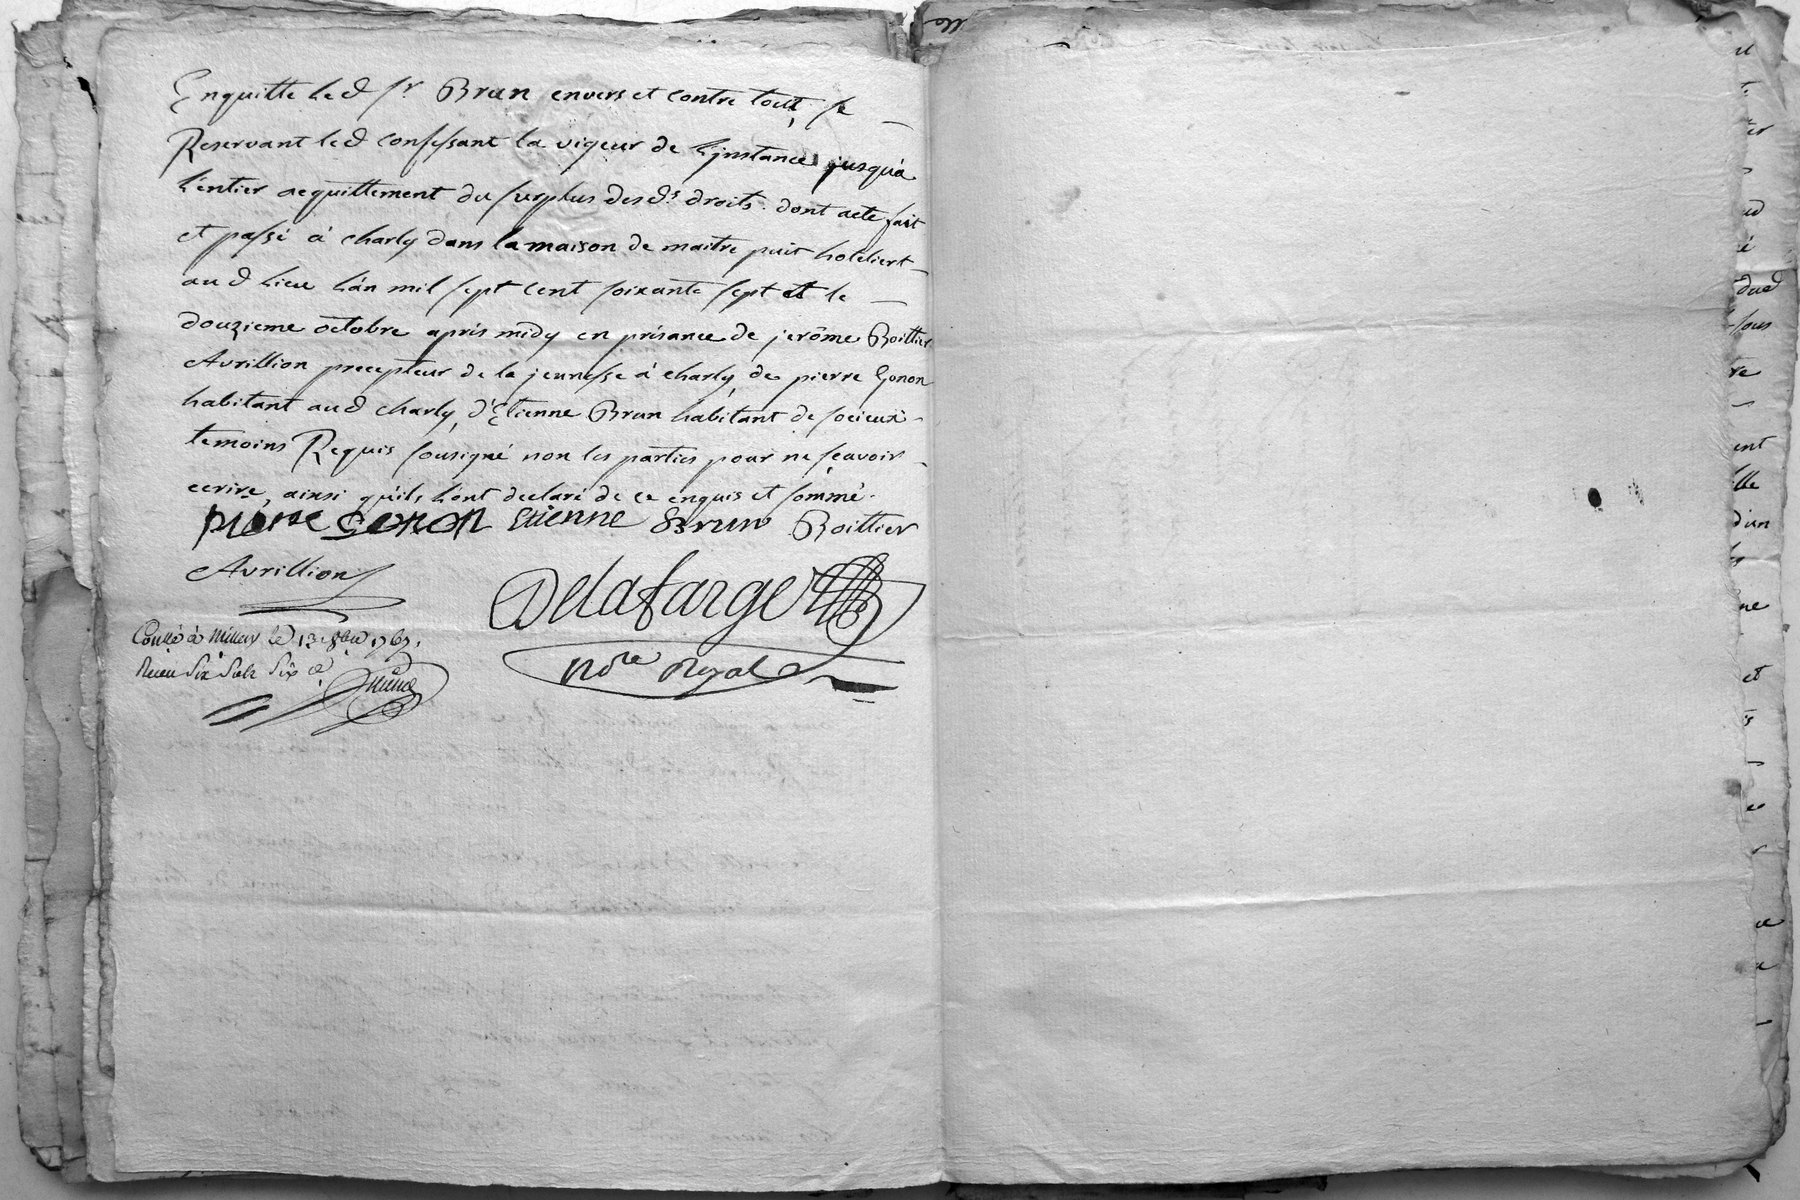 Enquitte led sr Brun envers et contre tout, se
Reservant led confessant la vigeur de linstance jusqu'a
l'entier acquittement du surplus desds droits. dont acte fait
et passé à charly dans la maison de maitre puit hotelier
aud lieu l'an mil sept cent soixante sept et le
douzieme octobre après midy en présance de jerôme Boittier
Avrillion precepteur de la jeunesse à charly, de pierre Gonon
habitant aud charly, d'Etienne Brun habitant de
temoins Requis sousigné non les parties pour ne scavoir
ecrire, ainsi qu'ils l'ont declaré de ce enquis et sommé.
pierre Gonon Etienne Brun Boittier
Avrillion
Delafarge
Nore Royal
Conllé à Millery le 13. 8bre 1767.
Receu Six Sols Six d.